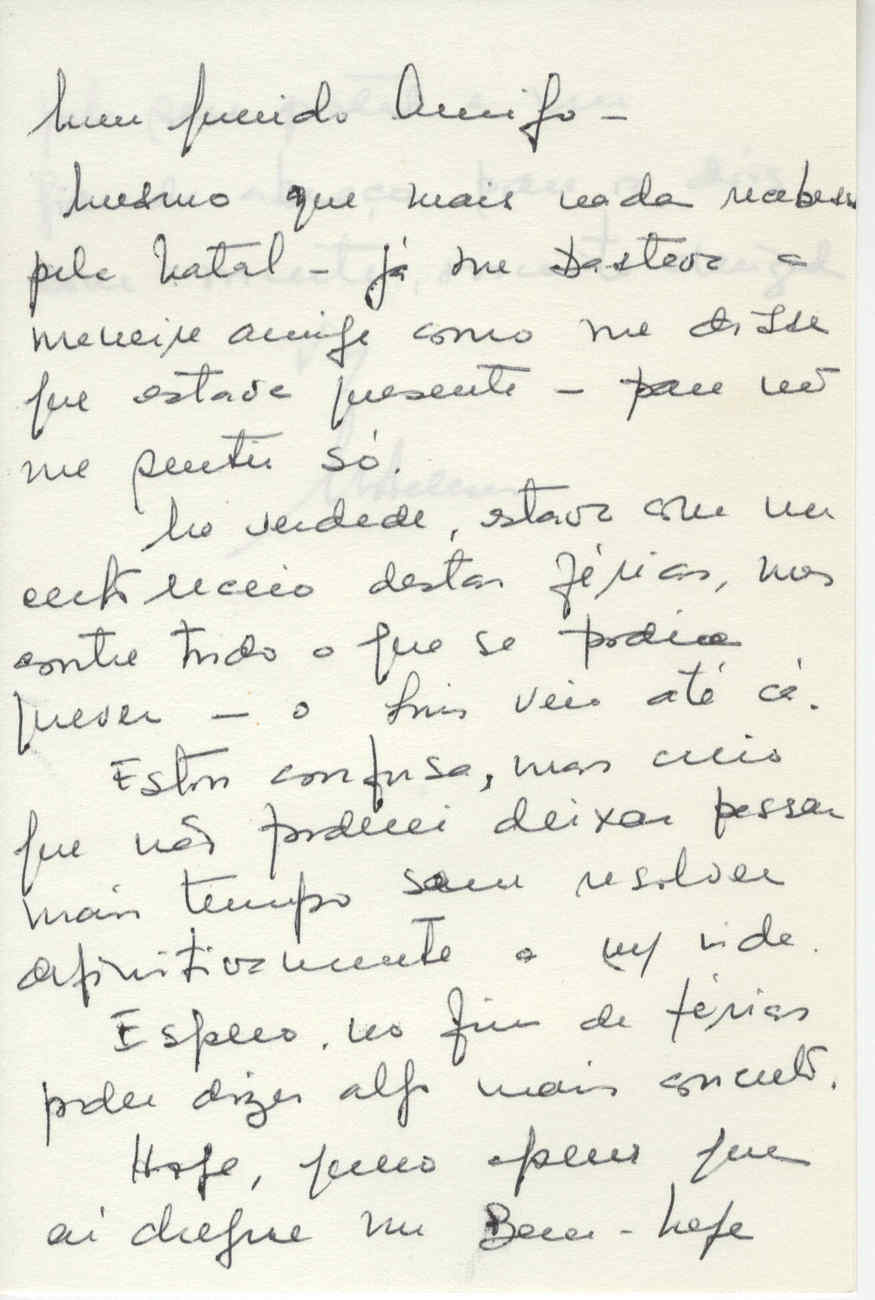 Meu querido Amigo -
Mesmo que mais nada recebesse
pelo Natal - já me bastava a
maneira amiga como me disse
que estava presente - para não
me sentir só.
Na verdade, estava com um
certo receio destas férias, mas
contra tudo o que se podia
prever - o Luis veio até cá.
Estou confusa, mas creio
que não poderei deixar passar
mais tempo sem resolver
definitivamente a m/ vida.
Espero, no fim de férias
poder dizer algo mais concreto.
Hoje, quero apenas que
aí chegue um Bem-haja